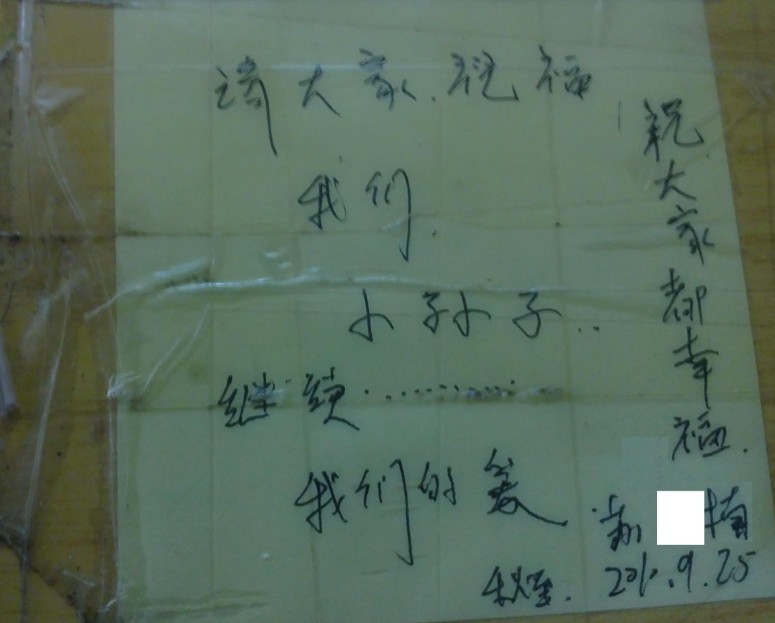 请大家祝福
我们
小孙子..
继续............
我们的爱
祝大家都幸福.
楠
2010.9.25